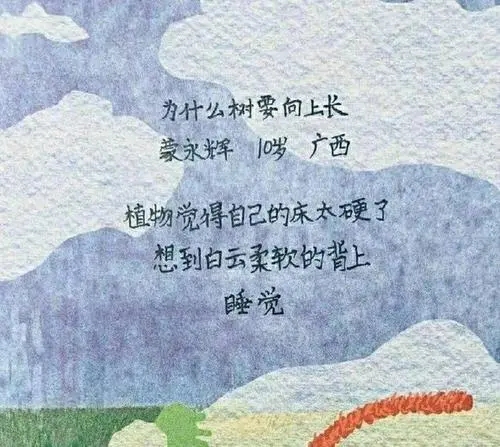 为什么树要向上长
蒙永辉 10岁 广西
植物觉得自己的床太硬了
想到白云柔软的背上
睡觉